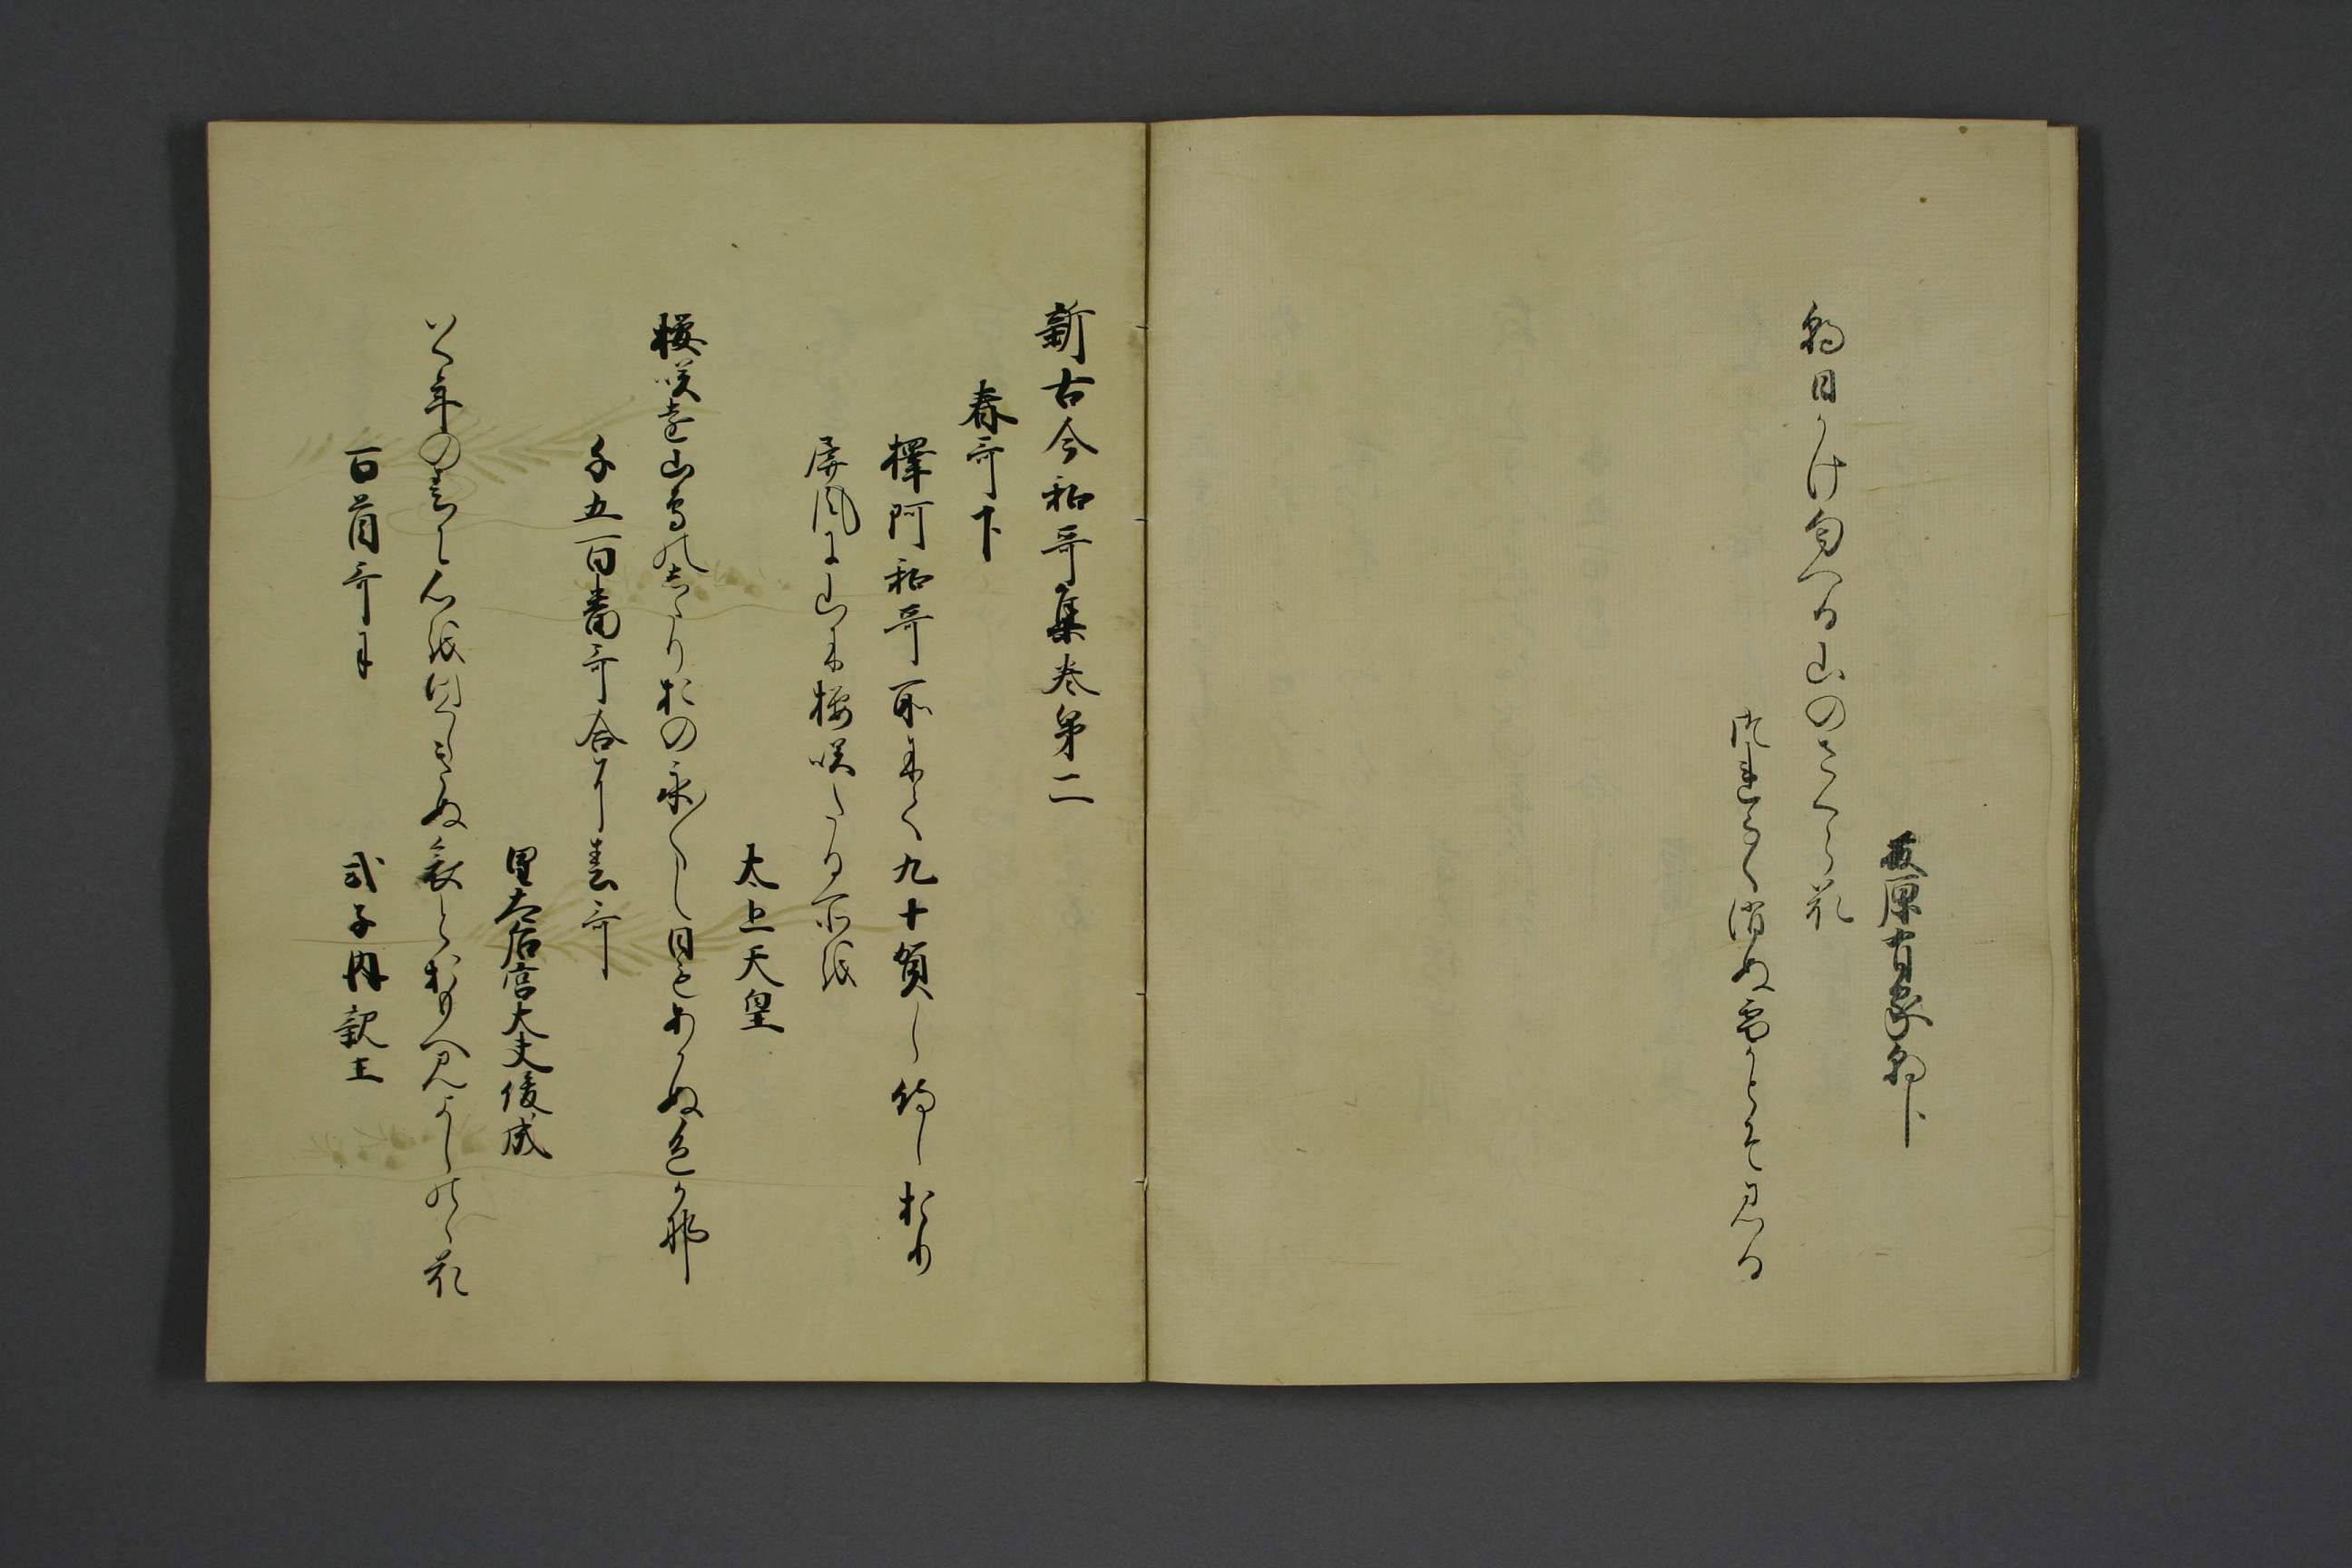 藤原有家朝臣
朝日かけ匂へる山のさくら花
つれなく消ぬ雪かとそ見る
新古今和哥集巻第二
春哥下
釋阿和哥所にて九十賀し侍しおり
屏風に山に桜咲たる所を
太上天皇
桜咲遠山鳥のしたりおの永〱し日もあかぬ色か那
千五百番哥合に春哥
皇太后宮大夫俊成
いく年の春に心を尽しきぬ哀とおもへみよしのゝ花
百首哥に
式子内親王